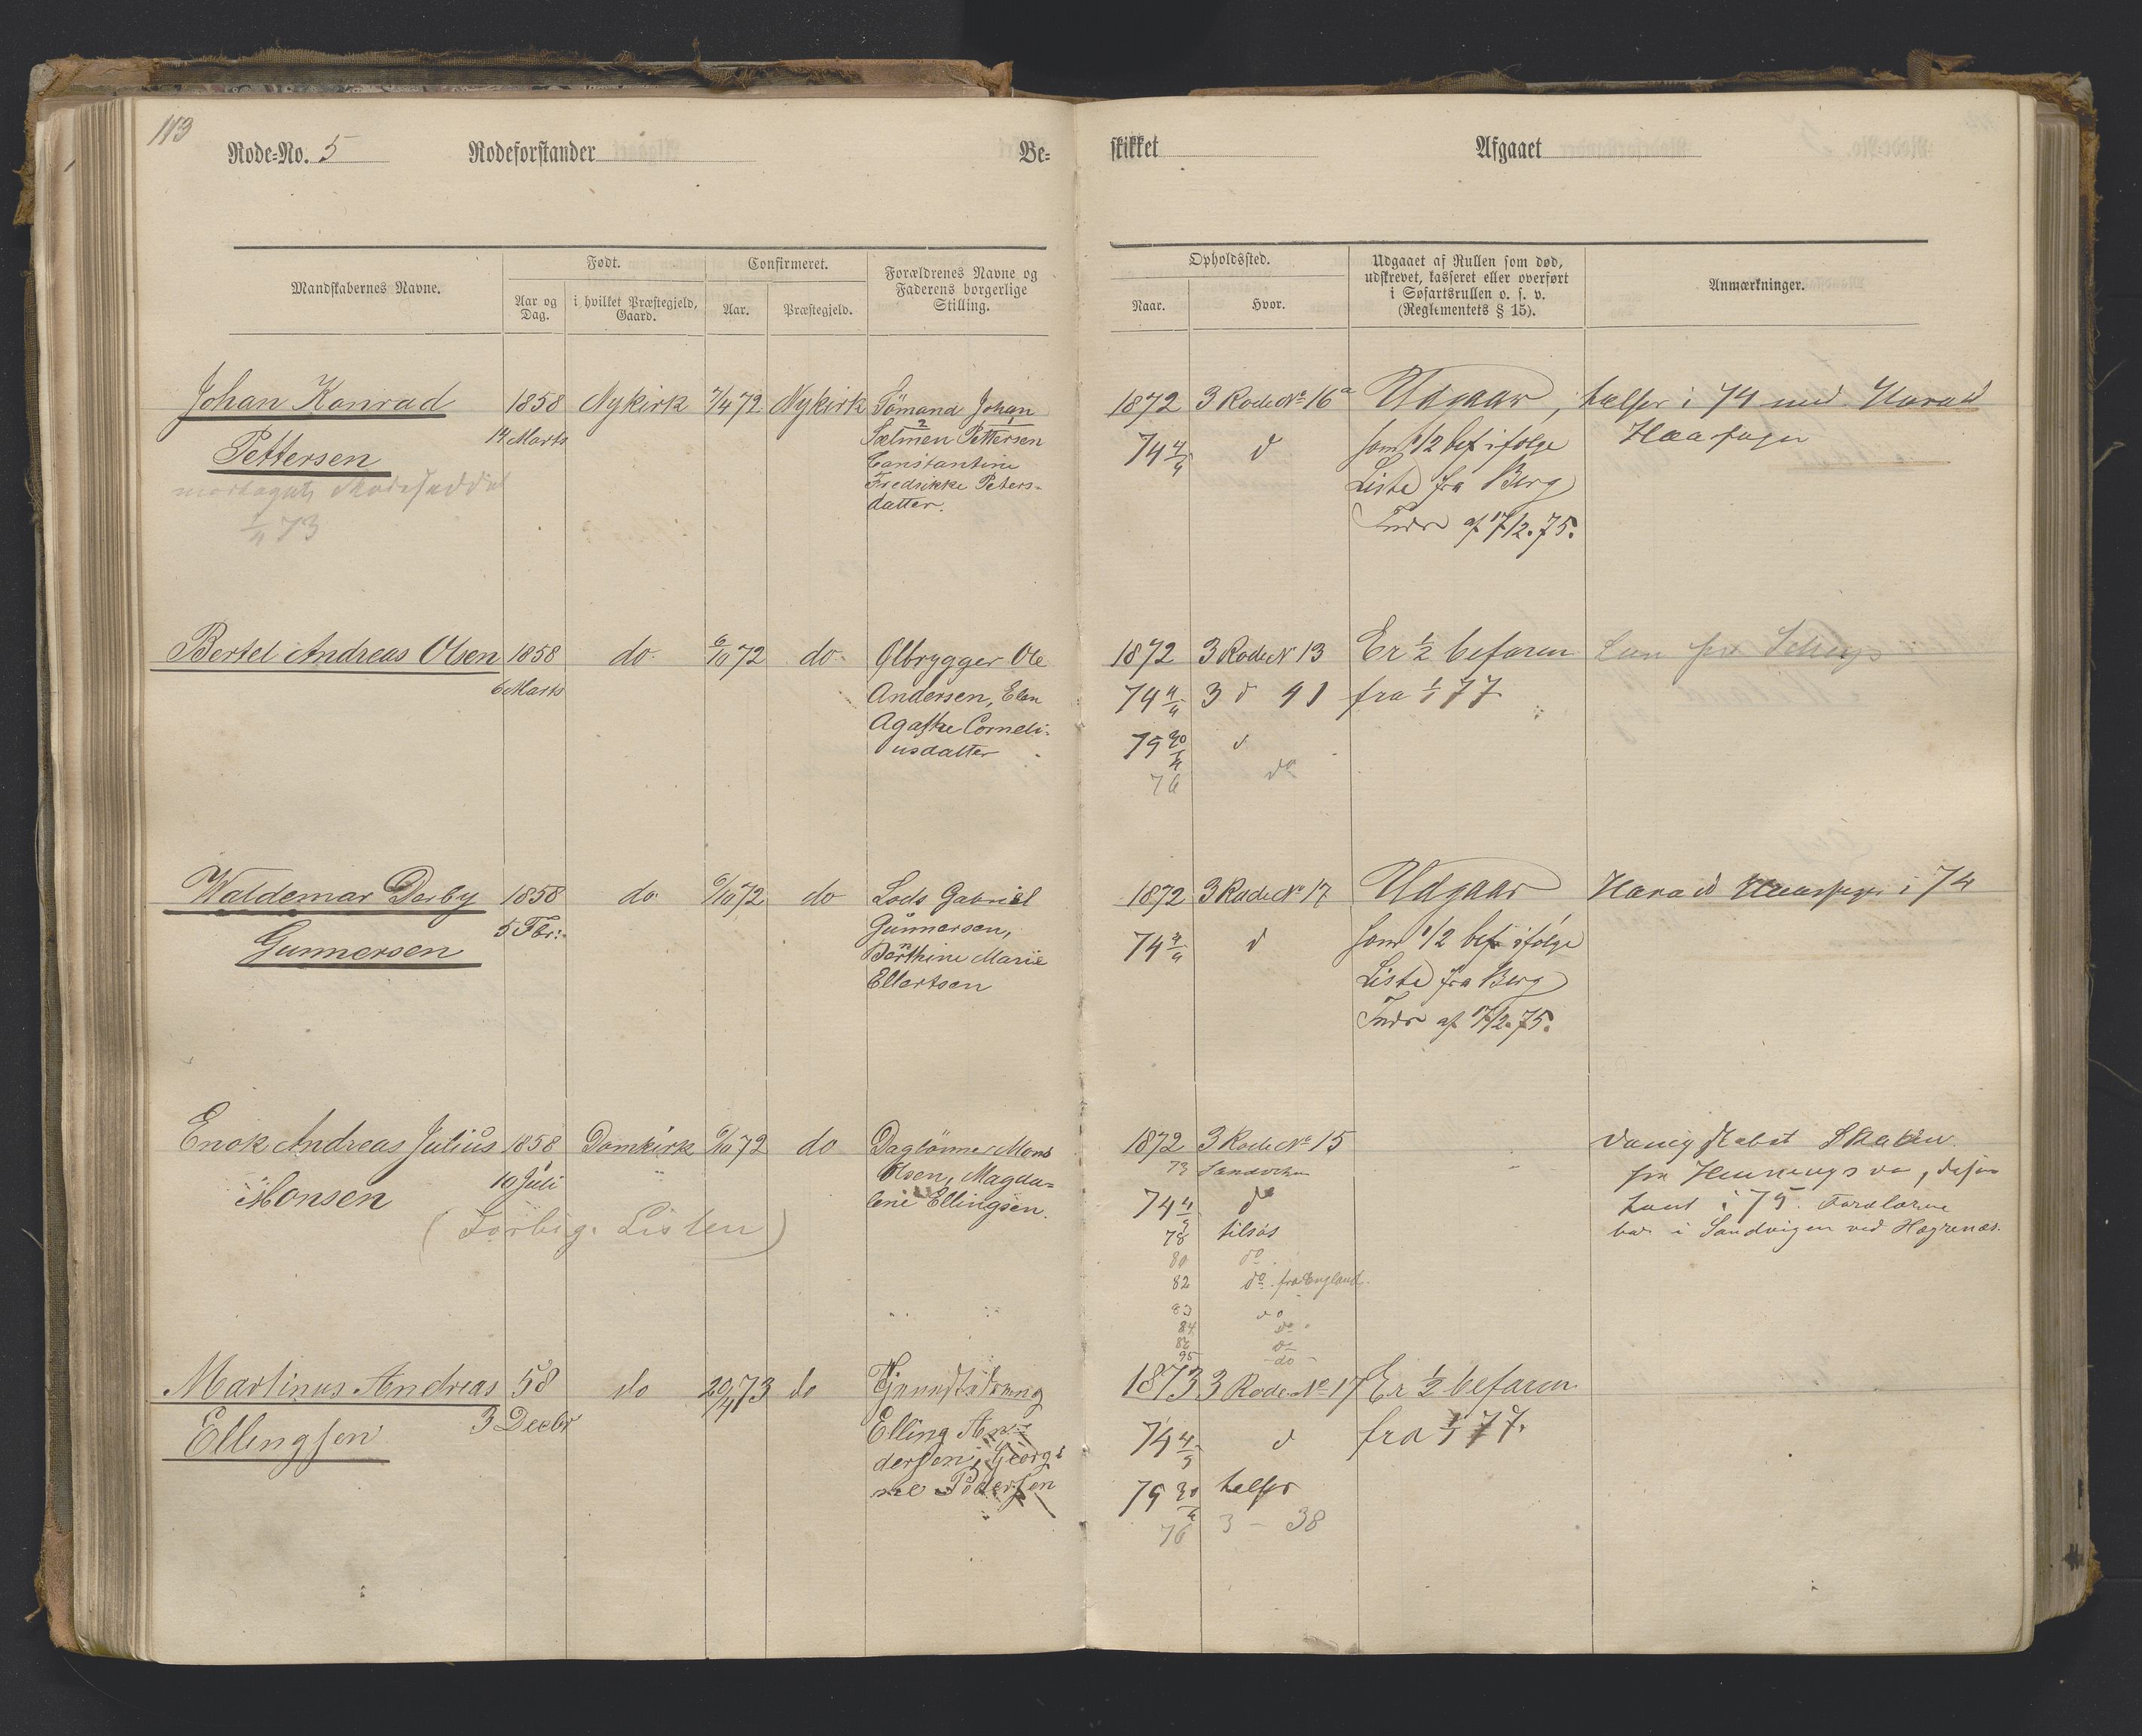 113
Rode-No. 5 Rodeforstander Be-
skikket Afgaaet
Mandskabernes Navne.
Født.
Aar og Dag.
i hvilket Præstegjeld, Gaard.
Confirmeret.
Aar.
Præstegjeld.
Forældrenes Navne og
Faderens borgerlige
Stilling.
Opholdssted.
Naar.
Hvor.
Udgaaet af Rullen som død,
udskrevet, kasseret eller overført
i Søfartsrullen o. s. v.
(Reglementets § 15).
Anmærkninger.
Johan Konrad
Pettersen
1/4 73
1858
14 Marts
Nykirk
7/4 72
Nykirk
Sömand Johan
Sælmen Pettersen
Constantine
Fredrikke Peters-
datter.
1872 3 Rode No 16a
74 4/4 d
Udgaar,
som 1/2 bef ifølge
Liste fra Berg
Indr af 17/2.75.
i 74 med Harald
Haarfager
Bertel Andreas Olsen
1858
6 Marts
do.
6/10 72
do.
Ølbrygger Ole
Andersen, Elen
Agathe Corneli-
usdatter
1872 3 Rode N 13
74 4/4 3 d 41
75 30/4 d
76 do
Er 1/2 befaren
fra 1/1 77
Waldemar Derby
Gunnersen
1858
5 Fbr:
do
6/10 72
do
Lods Gabriel
Gunnersen,
Bärthine Marie
Ellertsen
1872 3 Rode No 17
74 4/4 d
Udgaar
som 1/2 bef ifølge
Liste fra Berg
Indr af 17/2.75.
Harald Haarfager i 74
Enok Andreas Julius
Monsen
(Forbig. Listen)
1858
10 Juli
Domkirk
6/10 72
do
Daglönner Mons
Olsen, Magda-
lene Ellingsen.
1872 3 Rode No 15
73 Sandviken
74 4/4 do
78 tilsøs
80 do
82 do. fra England.
83 do
84 do
86 do
95 do
i 75. Forældrene
boe i Sandvigen ved Hægrenæs.
Martinus Andreas
Ellingsen
58
3 Decbr
do
20/4 73
do
Elling An-
dersen, Georgi-
ne Pedersen
1873 3 Rode No 17
74 4/4 d
75 30/4
76 3 - 38
Er 1/2 befaren
fra 1/1 77.